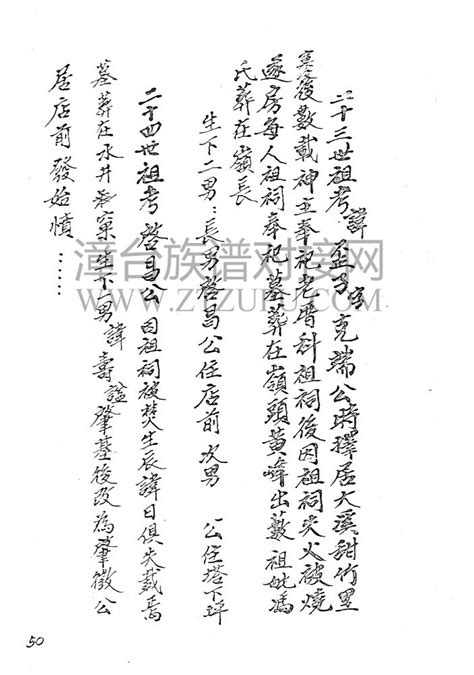 二十三世祖考諱孟子字克端公時擇居大溪甜竹里
後數載神主奉祀老厝科祖祠後因祖祠失火被燒
遂房每人祖祠奉祀墓葬在嶺頭黃峰出藪祖妣馮
氏葬在嶺長
生下二男：長男啓昌公住店前 次男 公住塔下坪
二十四世祖考啓昌公因祖祠被焚生辰諱日俱失載焉
墓葬在水井窠生下一男諱壽謚肇基後改為肇徵公
居店前發始憤……
漳台族谱对接网
WWW.ZTZUPU.COM
50